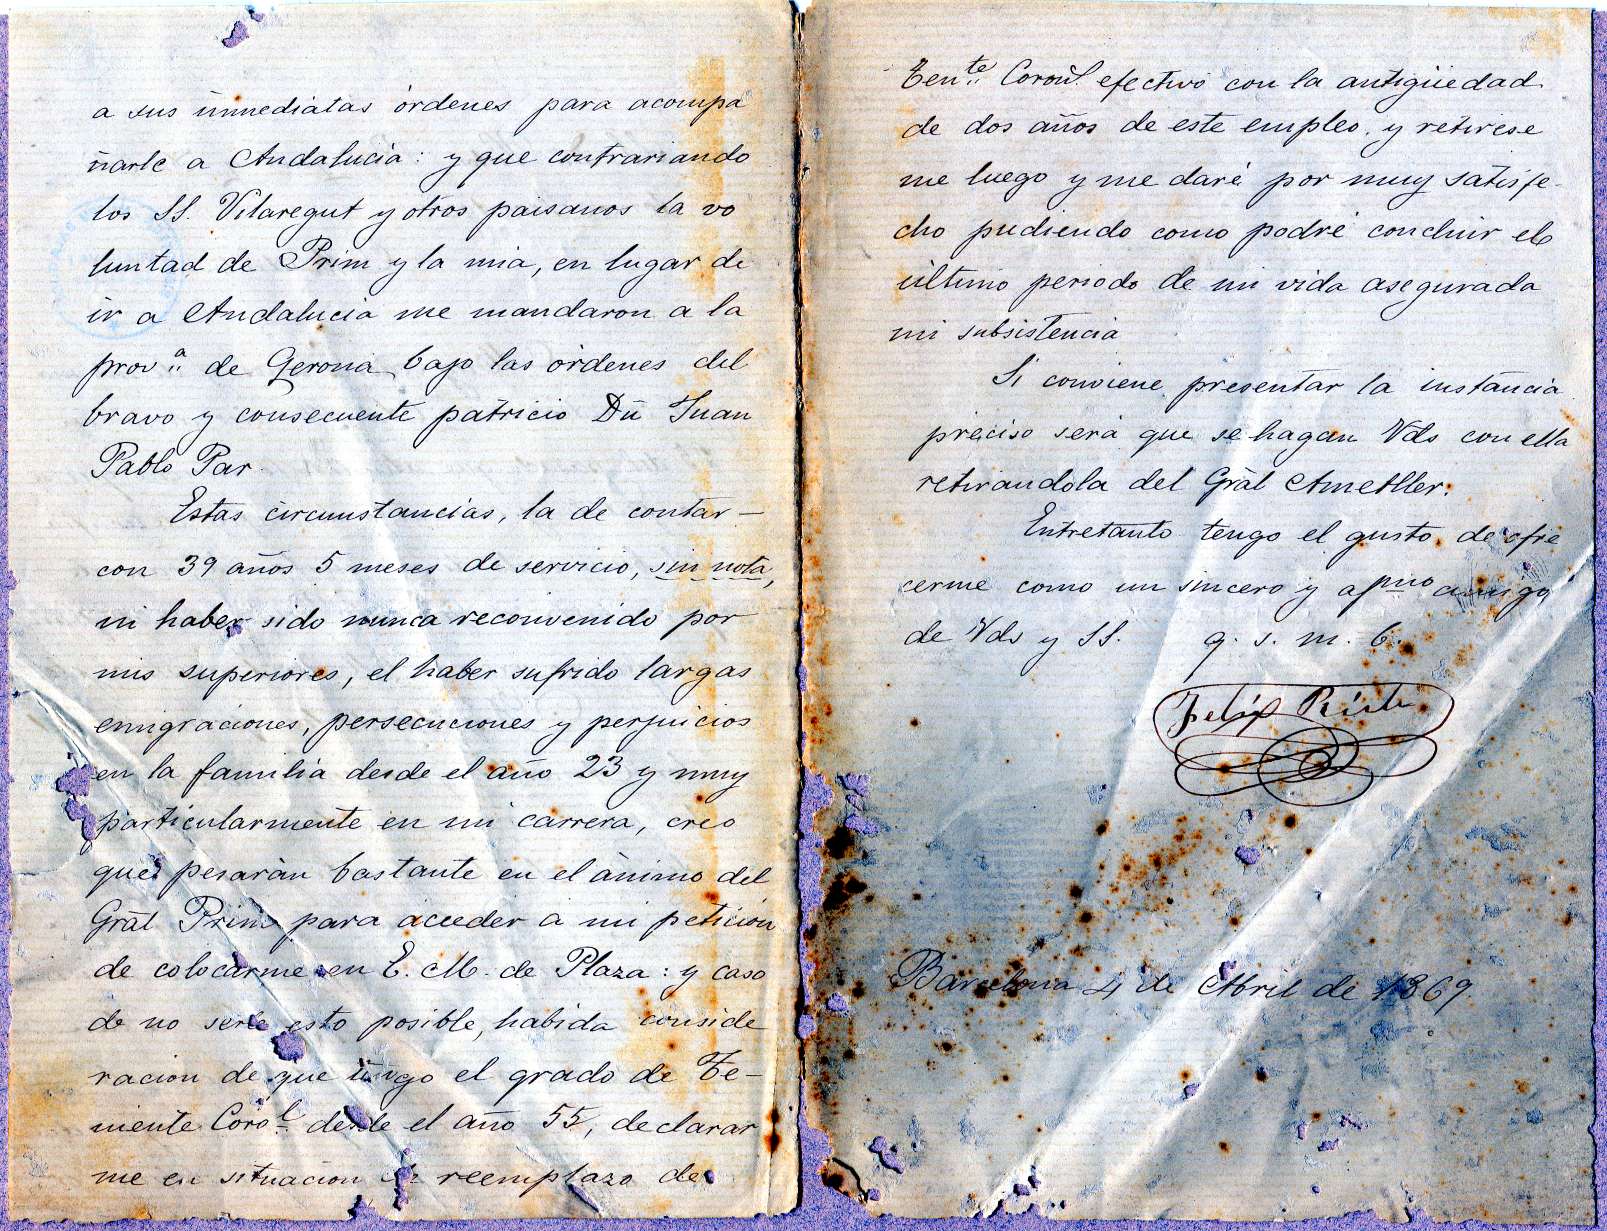 a sus inmediatas órdenes para acompa
ñarle a Andalucia: y que contrariando
los SS. Vilaregut y otros paisanos la vo
luntad de Prim y la mia, en lugar de
ir a Andalucia me mandaron a la
prov.ª de Gerona bajo las órdenes del
bravo y consecuente patricio Dn Juan
Pablo Par.
Estas circunstancias, la de contar —
con 39 años 5 meses de servicio, sin nota,
ni haber sido nunca reconvenido por
mis superiores, el haber sufrido largas
emigraciones, persecuciones y perjuicios
en la familia desde el año 23 y muy
particularmente en mi carrera, creo
que pesarán bastante en el ánimo del
Gral Prim para acceder a mi petición
de colocarme en E. M. de Plaza: y caso
de no serle esto posible, habida conside
racion de que tengo el grado de Te—
niente Coro.l desde el año 55, declarar
me en situacion de reemplazo de
Ten.te Coronl. efectivo con la antigüedad
de dos años de este empleo, y retirese
me luego y me daré por muy satisfe-
cho pudiendo como podré concluir el
último periodo de mi vida asegurada
mi subsistencia
Si conviene presentar la instancia
preciso será que se hagan Vds con ella
retirandola del Gràl Ametller.
Entretanto tengo el gusto de ofre
cerme como un sincero y afmo amigo
de Vds y SS. q. s. m. b.
Felix
Barcelona 4 de Abril de 1869